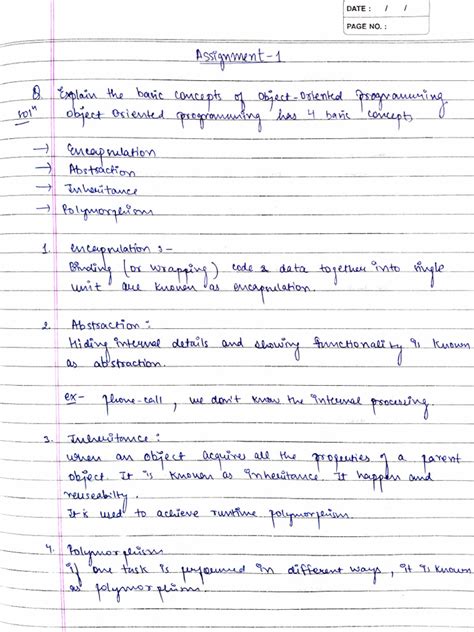 DATE : / /
PAGE NO. :
Assignment-1
Q. Explain the basic concepts of object-oriented programming
soln object oriented programming has 4 basic concepts
→ Encapsulation
→ Abstraction
→ Inheritance
→ Polymorphism
1. encapsulation :-
Binding (or wrapping) code & data together into single
unit are known as encapsulation.
2. Abstraction :
Hiding internal details and showing functionality is known
as abstraction.
ex- phone-call, we don't know the internal processing.
3. Inheritance :
when an object acquires all the properties of a parent
object. It is known as inheritance. It happen and
reuseability.
It is used to achieve runtime polymorphism.
4. Polymorphism
if one task is performed in different ways, it is known
as polymorphism.